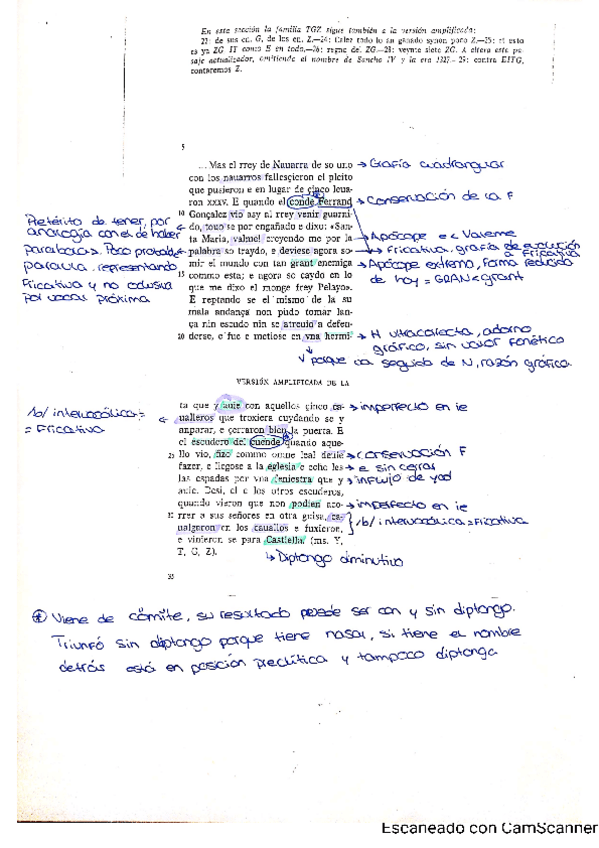 En esta sección la familia TGZ sigue también a la versión amplificada:
22: de sus cn. G, de los cn. Z.—24: todo lo
es ya ZG IT como E en todo.—26: regno del ZG.—28: veynte siete ZG. A altera este pa-
saje actualizador, omitiendo el nombre de Sancho IV y la era 1327.—29: contra EITG,
contaremos Z.
5
... Mas el rrey de Nauarra de so uno → Grafía cuadrangular
con los nauarros fallesçieron el pleito
que pusieron e en lugar de çinco leua-
ron XXXV. E quando el conde Ferrand → Conservación de la F
10 Gonçalez vio asy al rrey venir guarni-
do, touo se por engañado e dixo: «San-
ta Maria, valme! creyendo me por la
palabra so traydo, e deviese agora so-
mir el mundo con tan grant enemiga
15 commo esta; e agora so caydo en lo
que me dixo el monge frey Pelayo».
E reptando se el mismo de la su
mala andança non pudo tomar lan-
ça nin escudo nin se atreuio a defen-
20 derse, e fue e metiose en vna hermi-
Pretérito de tener, por
analogía con el de haber
para touo. Poco probable
para una representando
Fricativa y no oclusiva
por vocal próxima
→ Apócope e < Valeme
→ Fricativa, grafía de evolución
a Fricativa
→ Apócope extremo, forma reducida
de hoy = GRAN < grant
→ H ultracorrecta, adorno
gráfico, sin valor fonético
V porque va seguido de N, razón gráfica.
VERSIÓN AMPLIFICADA DE LA
ta que y auie con aquellos çinco ca- → imperfecto en ie
ualleros que troxiera cuydando se y
anparar, e çerraron bien la puerta. E
el escudero del cuende quando aque-
25 llo vio, fizo commo omne leal deuie → conservación F
fazer, e llegose a la eglesia e echo les → e sin cerrar
las espadas por vna feniestra que y → influjo de yod
auie. Desi, el e los otros escuderos,
quando vieron que non podien aco- → imperfecto en ie
30 rrer a sus señores en otra guisa, ca-
ualgaron en los cauallos e fuxieron, /b/ intervocálica = Fricativa
e vinieron se para Castiella. (ms. Y,
T, G, Z).
→ Diptongo diminutivo
/b/ intervocálica =
= Fricativa
35
* Viene de cómite, su resultado puede ser con y sin diptongo.
Triunfó sin diptongo porque tiene nasal, si tiene el nombre
detrás está en posición proclítica y tampoco diptonga
Escaneado con CamScanner